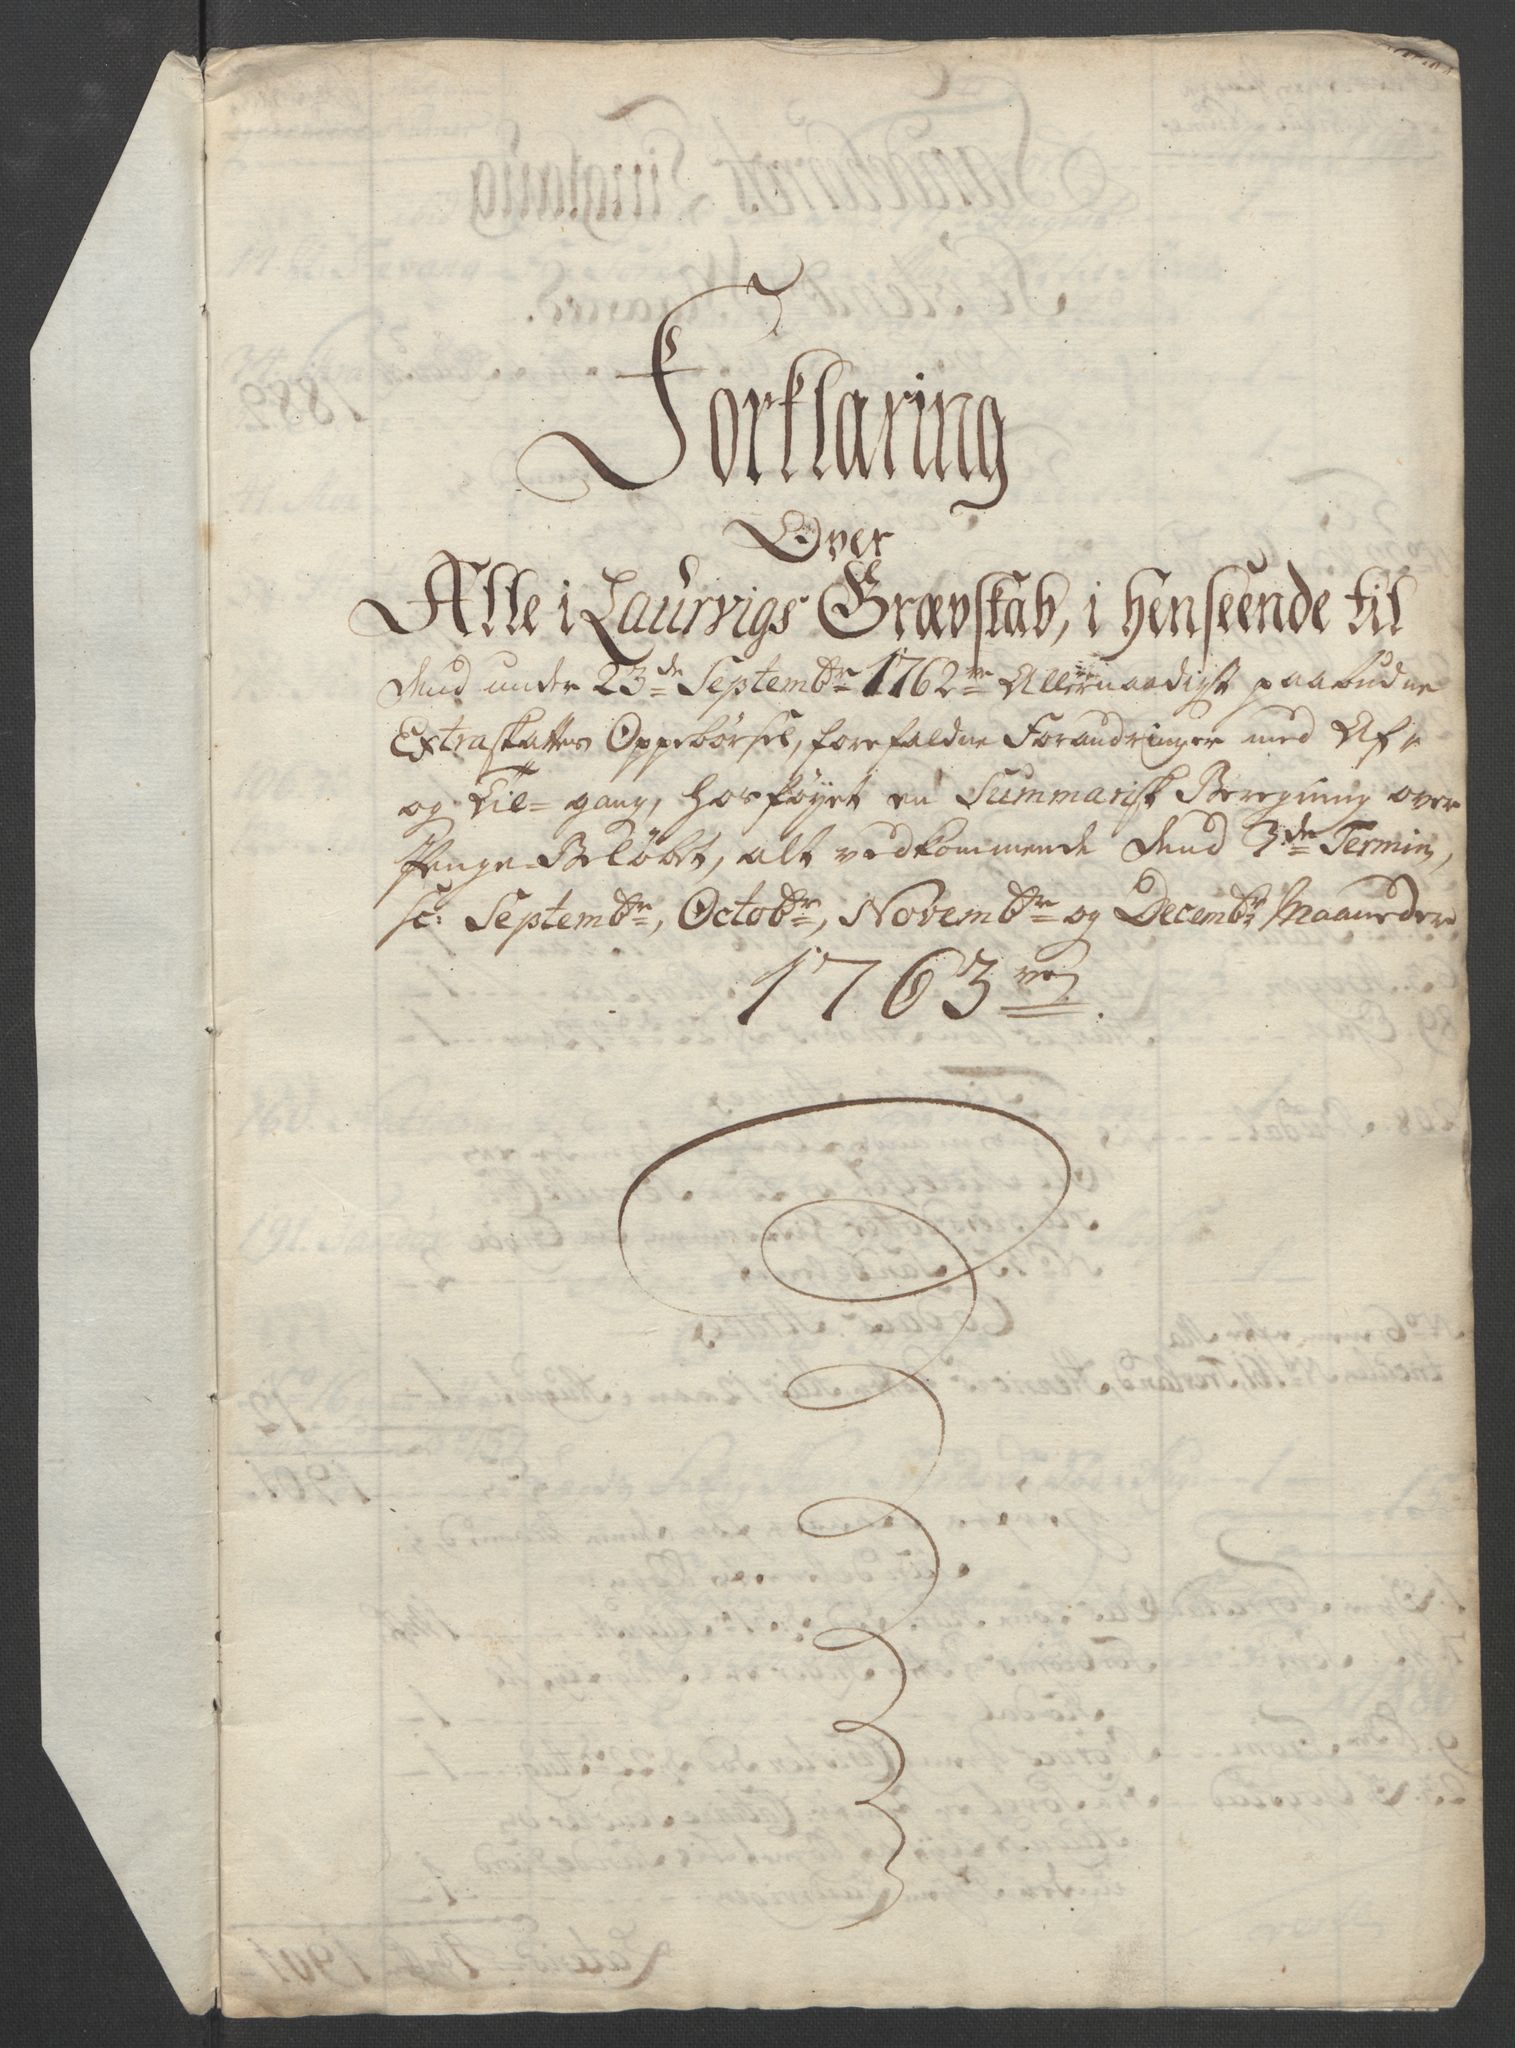 Forklaring
Over
Alle i Laurvigs Grævskab, i henseende til
dend under 23de Septembr 1762ve Allernaadigst paabudne
Extraskattes Oppebørsel, forefaldne Forandringer med Af-
og Til-gang, hosføyet en Summarisk Beregning over
Penge-Beløbet, alt vedkommende dend 3de Termin,
sc: Septembr, Octobr, Novembr og Decembr Maaneder
1763ve